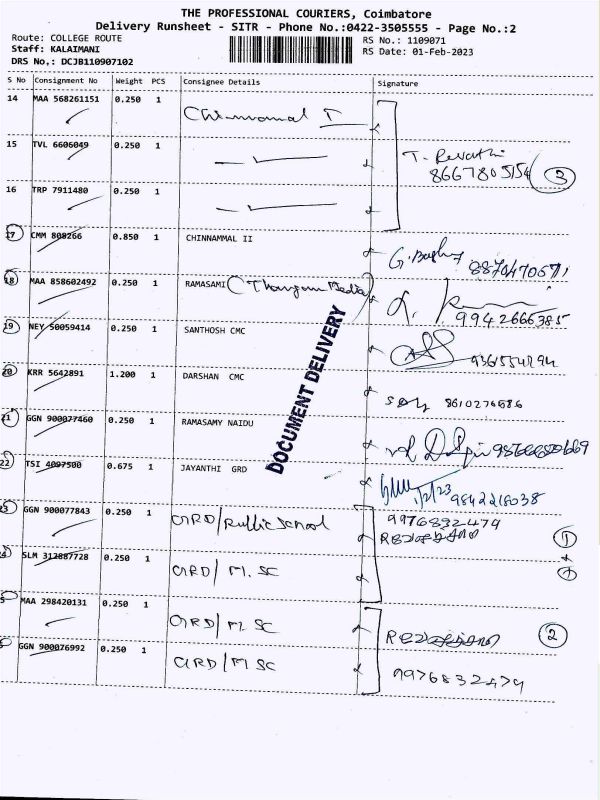 THE PROFESSIONAL COURIERS, Coimbatore
Delivery Runsheet - SITR - Phone No.:0422-3505555 - Page No.:2
Route: COLLEGE ROUTE
RS No.: 1109071
Staff: KALAIMANI
RS Date: 01-Feb-2023
DRS No.: DCJB110907102
S No Consignment No Weight PCS Consignee Details Signature
14 MAA 568261151 0.250 1 Chinnamal I
15 TVL 6606049 0.250 1
T. Revathi
8667805154 3
16 TRP 7911480 0.250 1
17 CMM 808266 0.850 1 CHINNAMMAL II
18 MAA 858602492 0.250 1 RAMASAMI (Thangam Media)
9942666385
19 NEY 50059414 0.250 1 SANTHOSH CMC
20 KRR 5642891 1.200 1 DARSHAN CMC
8610276686
21 GGN 900077460 0.250 1 RAMASAMY NAIDU
22 TSI 4097500 0.675 1 JAYANTHI GRD
1/2/23 9842218038
DOCUMENT DELIVERY
GGN 900077843 0.250 1 GRD/Public School
9976832479
1
SLM 312887728 0.250 1 GRD/M.SC
1
MAA 298420131 0.250 1 GRD/M.SC
2
GGN 900076992 0.250 1 GRD/M SC
9976832479